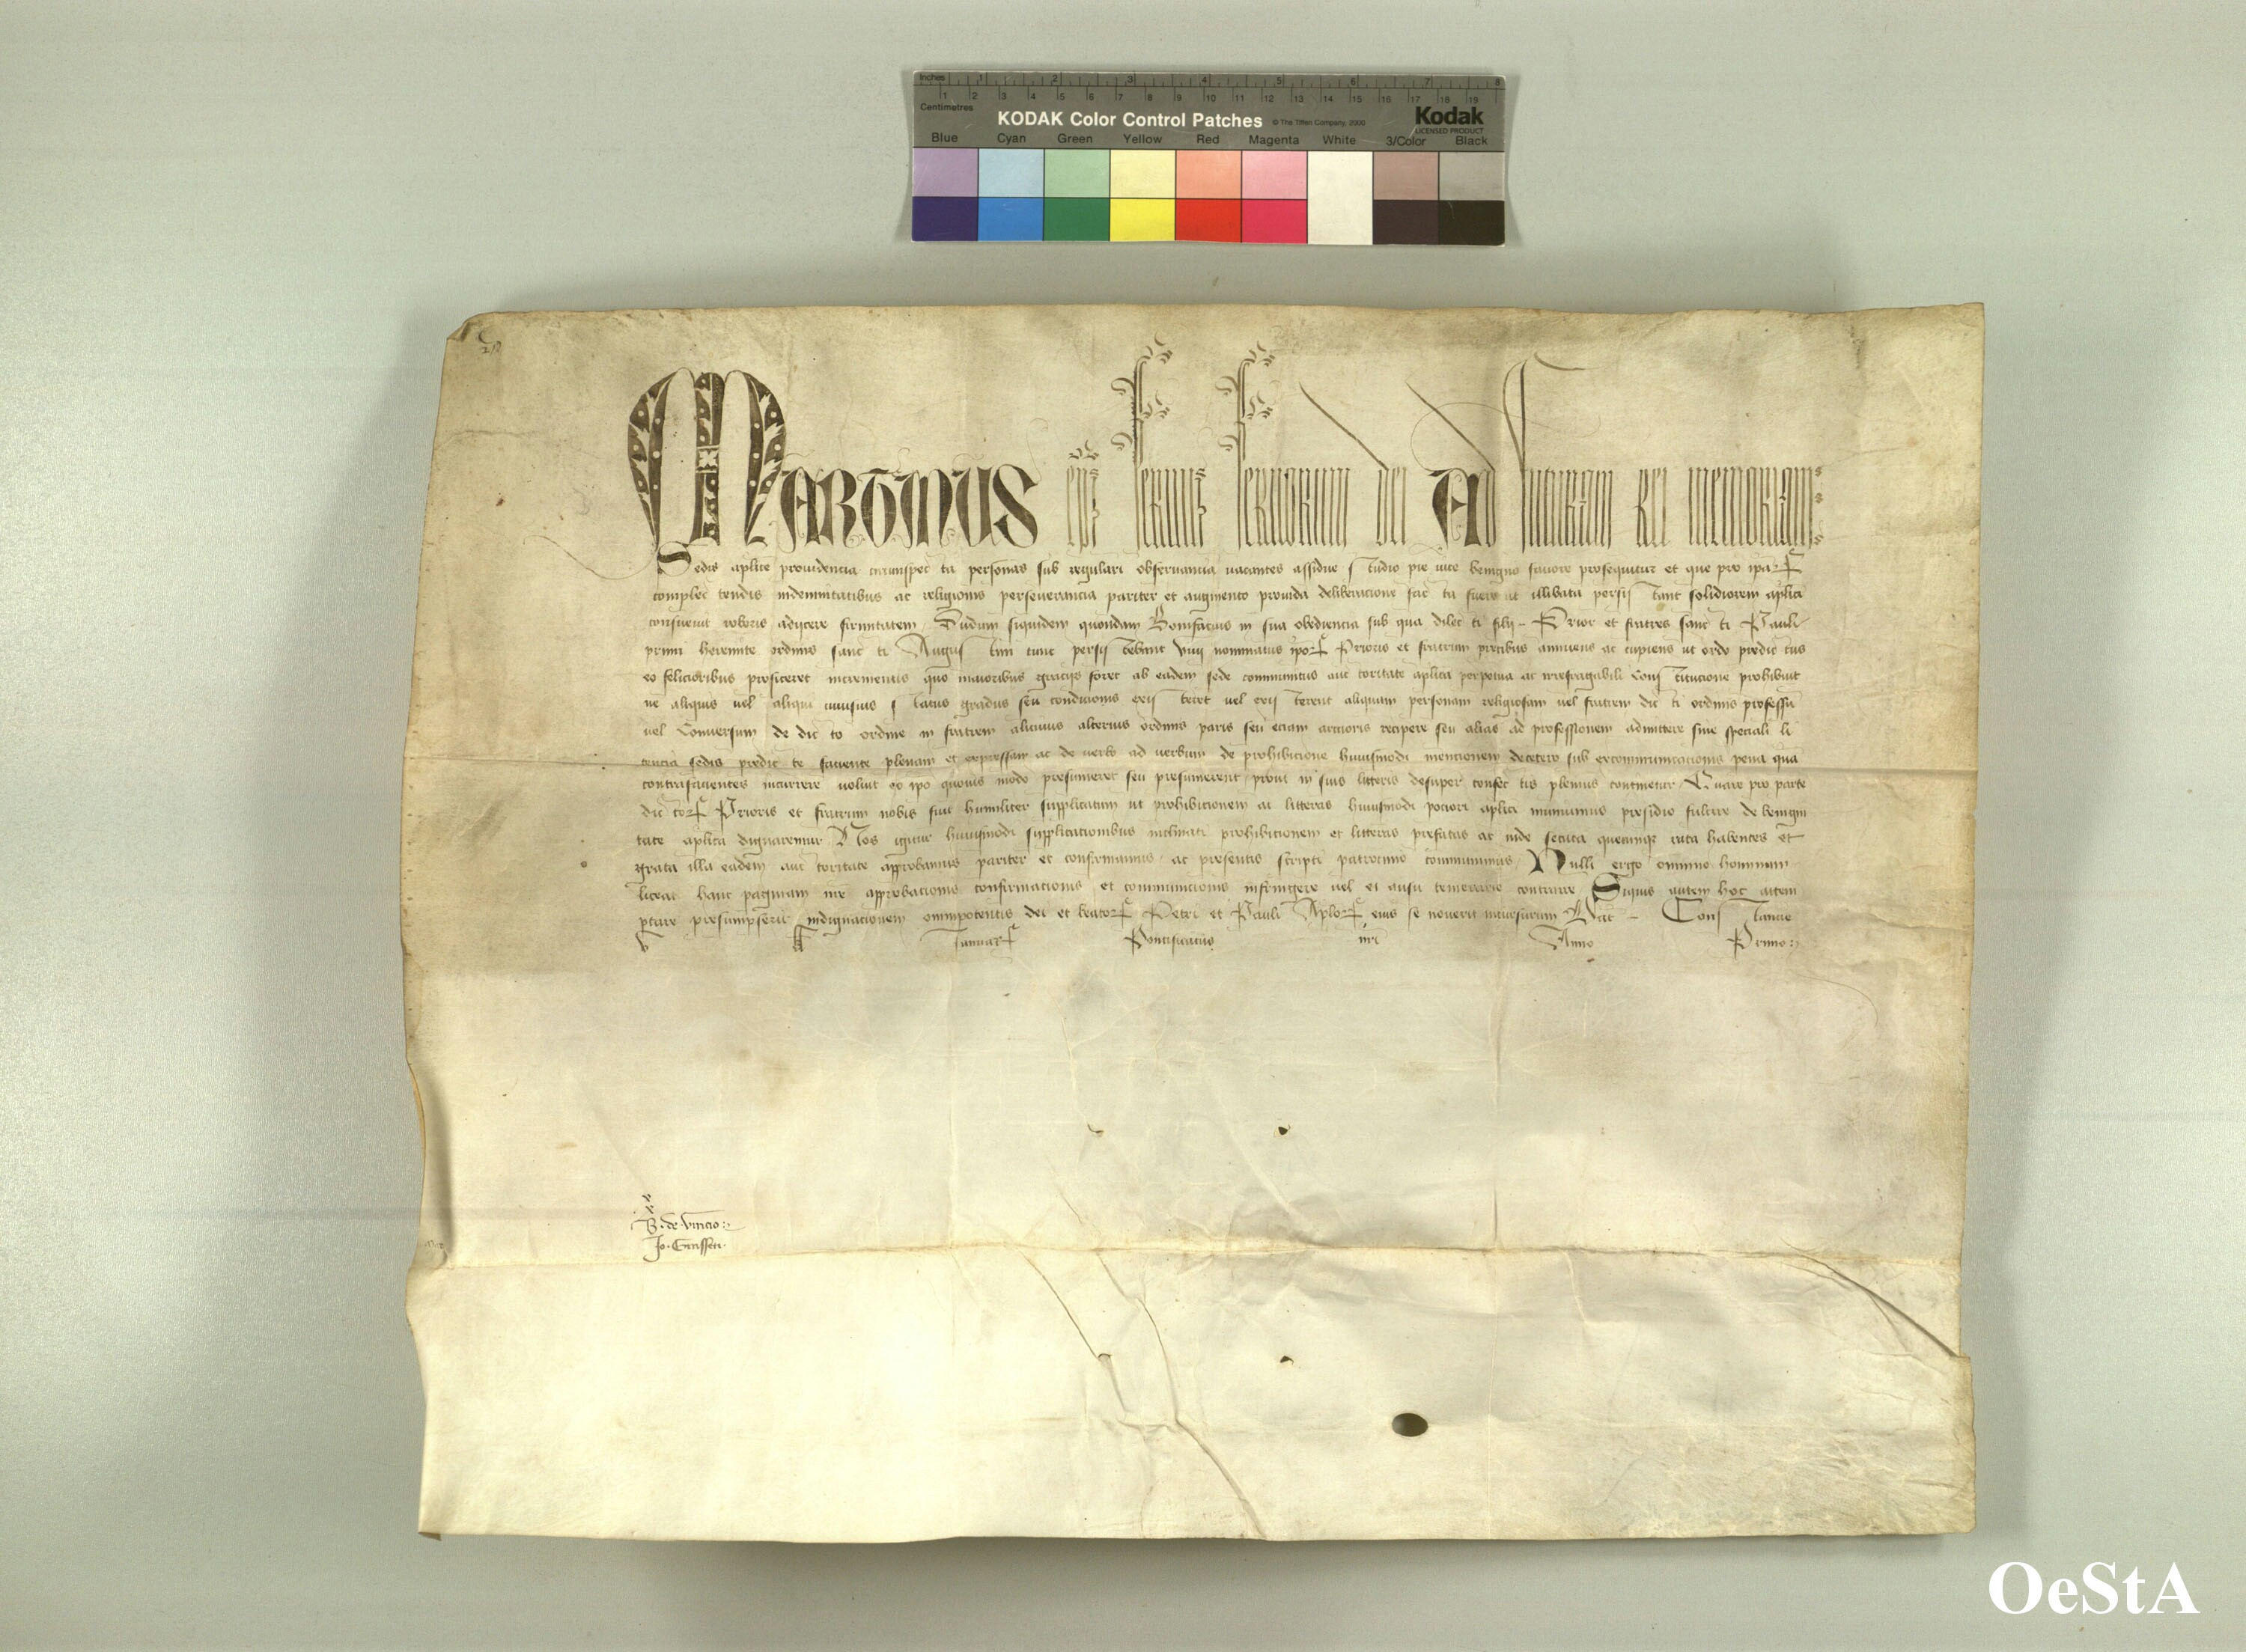 Inches 1 2 3 4 5 6 7 8
1 2 3 4 5 6 7 8 9 10 11 12 13 14 15 16 17 18 19
Centimetres
KODAK Color Control Patches © The Tiffen Company, 2000 Kodak
LICENSED PRODUCT
Blue Cyan Green Yellow Red Magenta White 3/Color Black
Martinus eps seruus seruorum dei Ad futuram rei memoriam
Sedis aplice prouidencia circumspecta personas sub regulari obseruancia vacantes assidue studio pie vite benigno fauore prosequitur et que pro ipar
complectendis indemnitatibus ac religionis perseuerancia pariter et augmento prouida deliberacione facta fuere ut illibata persistant solidiorem aplici
consueuit roboris adijcere firmitatem Dudum siquidem quondam Bonifacius in sua obediencia sub qua dilecti filij Prior et fratres sancti Pauli
primi heremite ordinis sancti Augustini tunc persistebant viiij nominatus ipor Prioris et fratrum precibus annuens ac cupiens ut ordo predictus
eo felicioribus proficeret incrementis quo maioribus gracijs foret ab eadem sede communitus auctoritate aplica perpetua ac irrefragabili Constitucione prohibuit
ne aliquis uel aliqui cuiusuis status gradus seu condicionis existeret uel existerent aliquam personam religiosam uel fratrem dicti ordinis professu
uel Conuersum de dicto ordine in fratrem alicuius alterius ordinis paris seu eciam arctioris recipere seu alias ad professionem admittere sine speciali li
cencia sedis predicte faciente plenam et expressam ac de verbo ad verbum de prohibicione huiusmodi mencionem decetero sub excommunicacionis pena qua
contrafacientes incurrere voluit eo ipo quouis modo presumeret seu presumerent prout in suis litteris desuper confectis plenius continetur Quare pro parte
dictor Prioris et fratrum nobis fuit humiliter supplicatum ut prohibicionem ac litteras huiusmodi pociori aplici muniminis presidio fulcire de benigni
tate aplica dignaremur Nos igitur huiusmodi supplicationibus inclinati prohibicionem et litteras prefatas ac inde secuta quecunque rata habentes et
grata illa eadem auctoritate approbamus pariter et confirmamus ac presentis scripti patrocinio communimus Nulli ergo omnino hominum
liceat hanc paginam nre approbacionis confirmacionis et communicionis infringere uel ei ausu temerario contraire Siquis autem hoc attem
ptare presumpserit indignacionem omnipotentis dei et beator Petri et Pauli Aplor eius se nouerit incursurum Dat Constancie
v kl Januar Pontificatus nri Anno Primo
x
x
B. de vincio
Jo.
OeStA